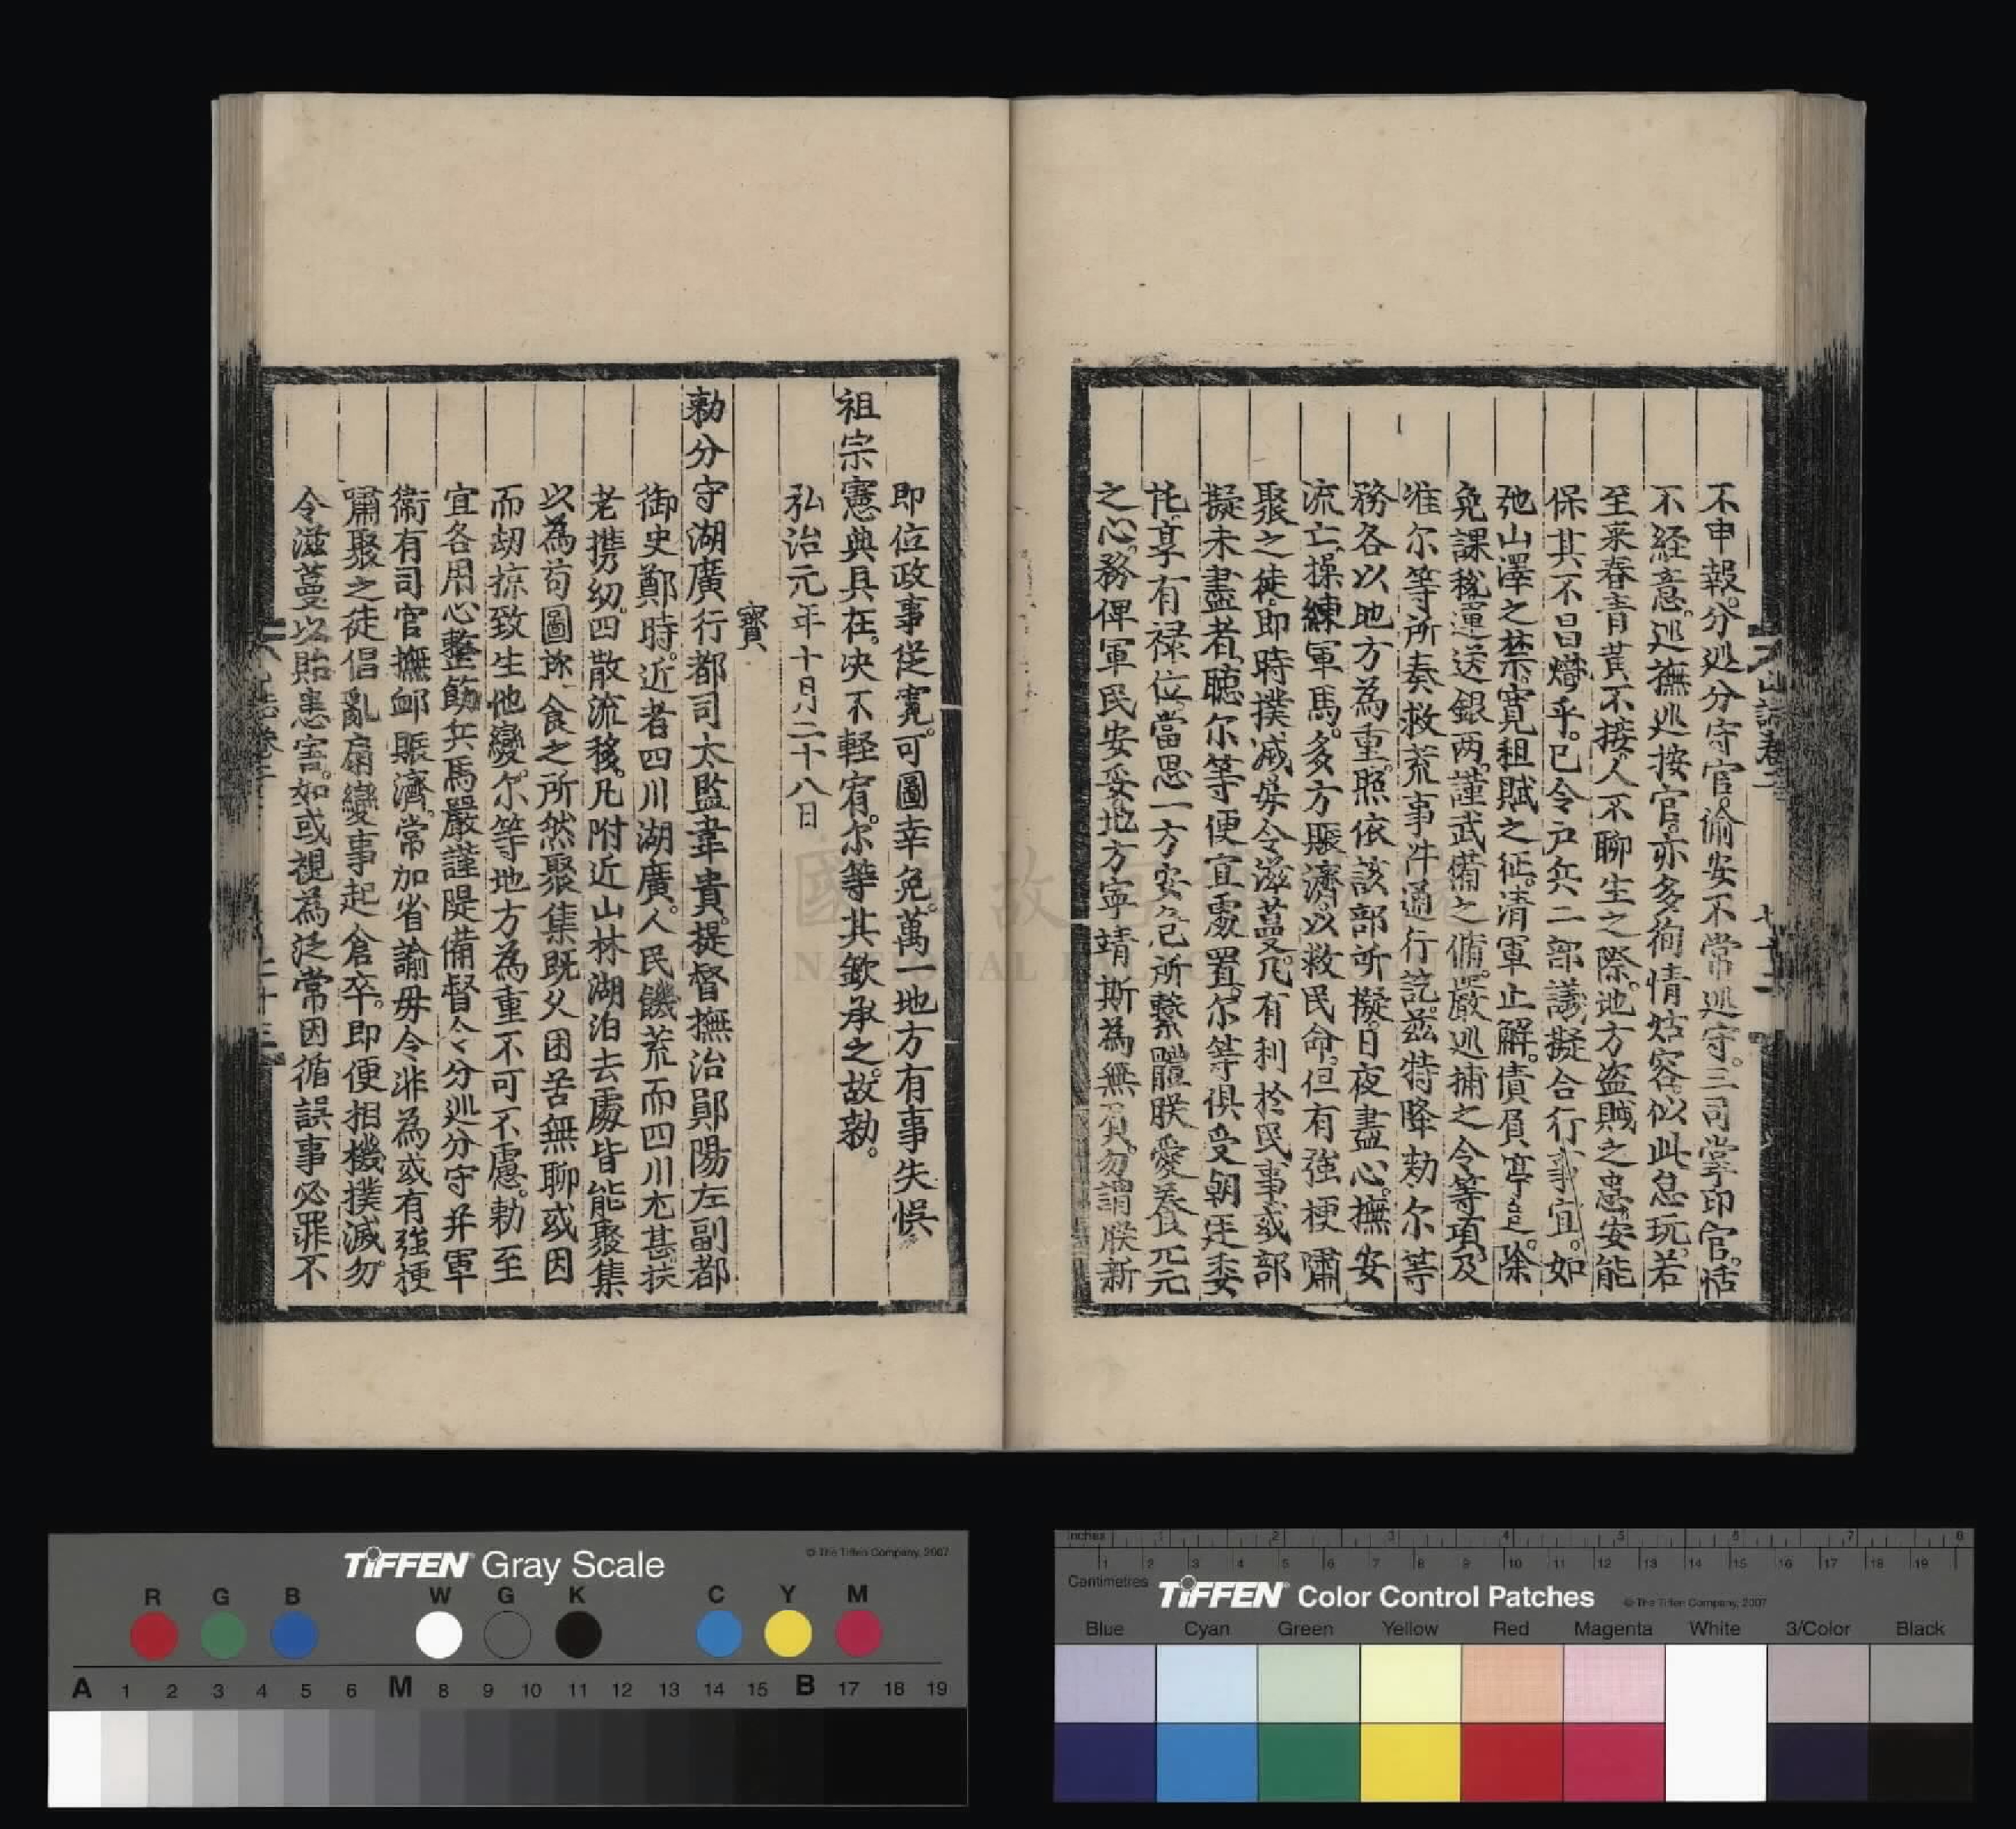 不申報。分廵分守官。偷安不常廵守。三司掌印官。恬
不経意。廵撫廵按官。亦多徇情姑容。似此怠玩。若
至来春青黄不接。人不聊生之際。地方盗賊之患。安能
保其不昌熾乎。已令户兵二部議擬合行事宜。如
弛山澤之禁。寛租賦之征。清軍止解。債負停追。除
免課稅。運送銀两。謹武備之脩。嚴廵捕之令等項。及
准尔等所奏救荒事件通行訖。兹特降勑尔等
務各以地方為重。照依該部所擬。日夜盡心。撫安
流亡。操練軍馬。多方賑濟。以救民命。但有強梗嘯
聚之徒。即時撲滅。毋令滋蔓。凡有利於民事。或部
擬未盡者。聴尔等便宜䖏置。尔等俱受朝廷委
托。享有禄位。當思一方安危所繫。體朕愛養元元
之心。務俾軍民安妥。地方寧靖。斯為無負。勿謂朕新
即位政事從寛。可圖幸免。萬一地方有事失悮
祖宗憲典具在。决不輕宥。尔等其欽承之。故勑。
弘治元年十月二十八日
寳
勑分守湖廣行都司太監韋貴。提督撫治鄖陽左副都
御史鄭時。近者四川湖廣。人民饑荒。而四川尤甚。扶
老携幼。四散流移。凡附近山林湖泊去䖏。皆能聚集
以為苟圖掠食之所。然聚集既久。困苦無聊。或因
而刼掠致生他變。尔等地方為重。不可不慮。勑至
宜各用心整飭兵馬。嚴謹隄備。督令分廵分守并軍
衛有司官撫卹賑濟。常加省諭。毋令非為。或有強梗
嘯聚之徒。倡亂扇變。事起倉卒。即便相機撲滅。勿
令滋蔓。以貽患害。如或視為泛常。因循誤事。必罪不